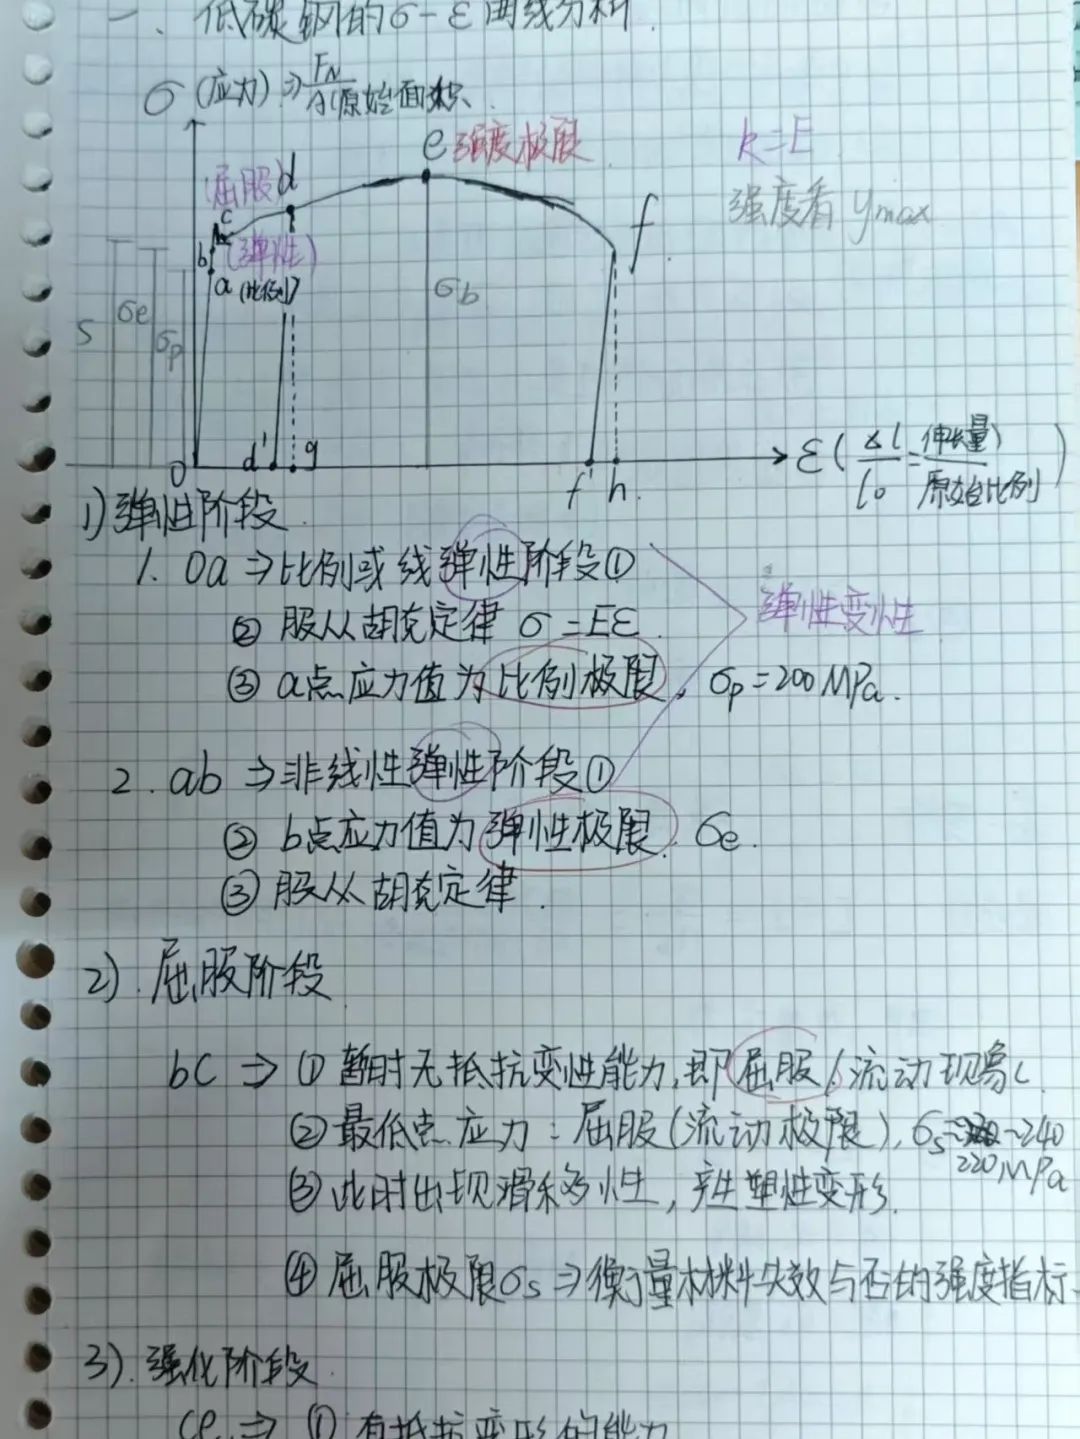 一、低碳钢的σ-ε曲线分析
σ(应力)⇒ FN/A(原始面积)
e 强度极限
k=E
强度看 ymax
(屈服) d
c
f
b (弹性)
a (比例)
σb
S σe σp
O d' g f' h
ε( Δl/l0 = 伸长量/原始比例 )
1) 弹性阶段
1. Oa ⇒ 比例或线弹性阶段①
② 服从胡克定律 σ=Eε.
弹性变性
③ a点应力值为比例极限, σp=200MPa.
2. ab ⇒ 非线性弹性阶段①
② b点应力值为弹性极限. σe.
③ 服从胡克定律.
2). 屈服阶段
bC ⇒ ① 暂时无抵抗变性能力,即屈服/流动现象
② 最低点应力: 屈服(流动极限), σs=220~240MPa
③ 此时出现滑移性, 产生塑性变形.
④ 屈服极限σs ⇒ 衡量材料失效与否的强度指标.
3). 强化阶段
ce ⇒ ① 有抵抗变形的能力